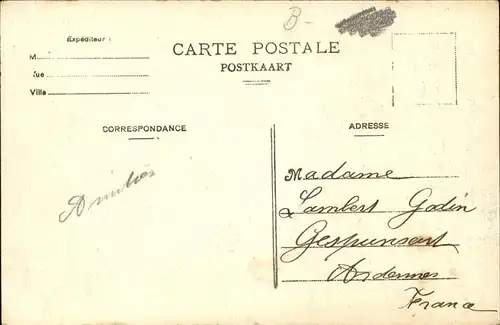 B-
Expéditeur :
M
Rue
Ville
CARTE POSTALE
POSTKAART
CORRESPONDANCE
ADRESSE
Amitiés
Madame
Lambert Godin
Gespunsart
Ardennes
France